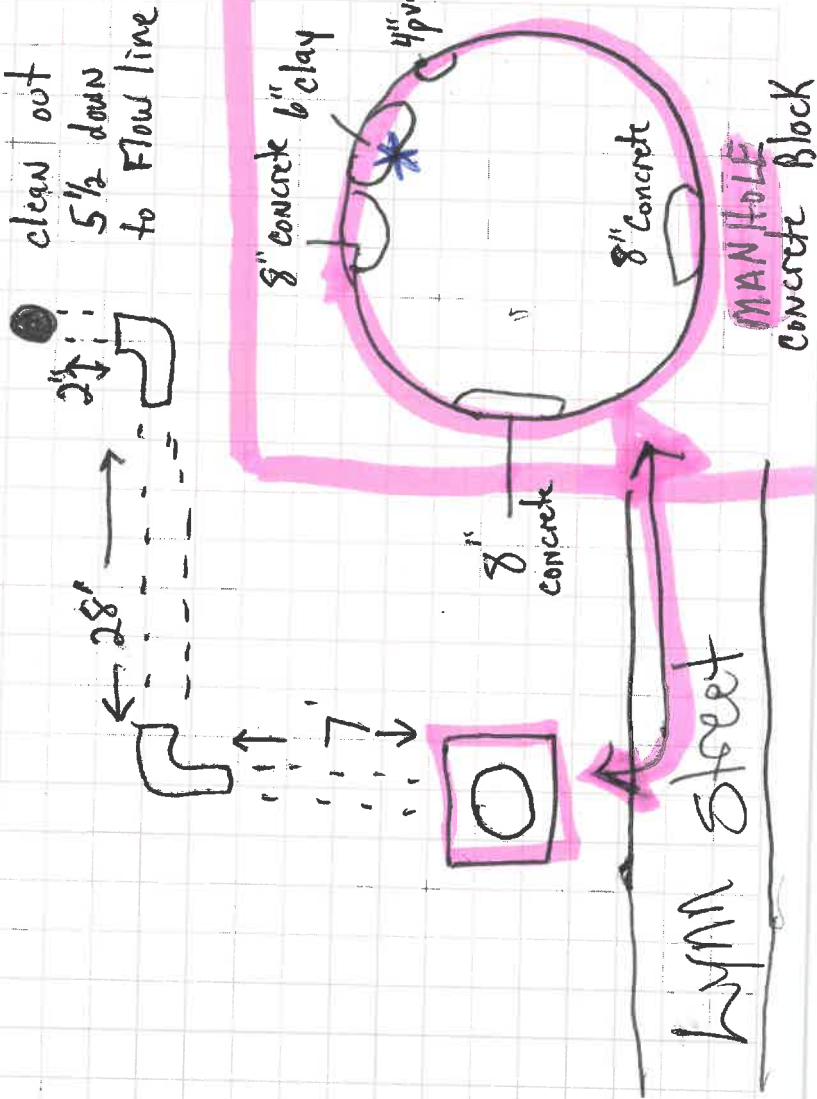 clean out
5 1/2 down
to Flow line
2'
28'
7
8" concrete
6" clay
4" pv
8" concrete
8" Concrete
MANHOLE
Concrete Block
Lynn Street